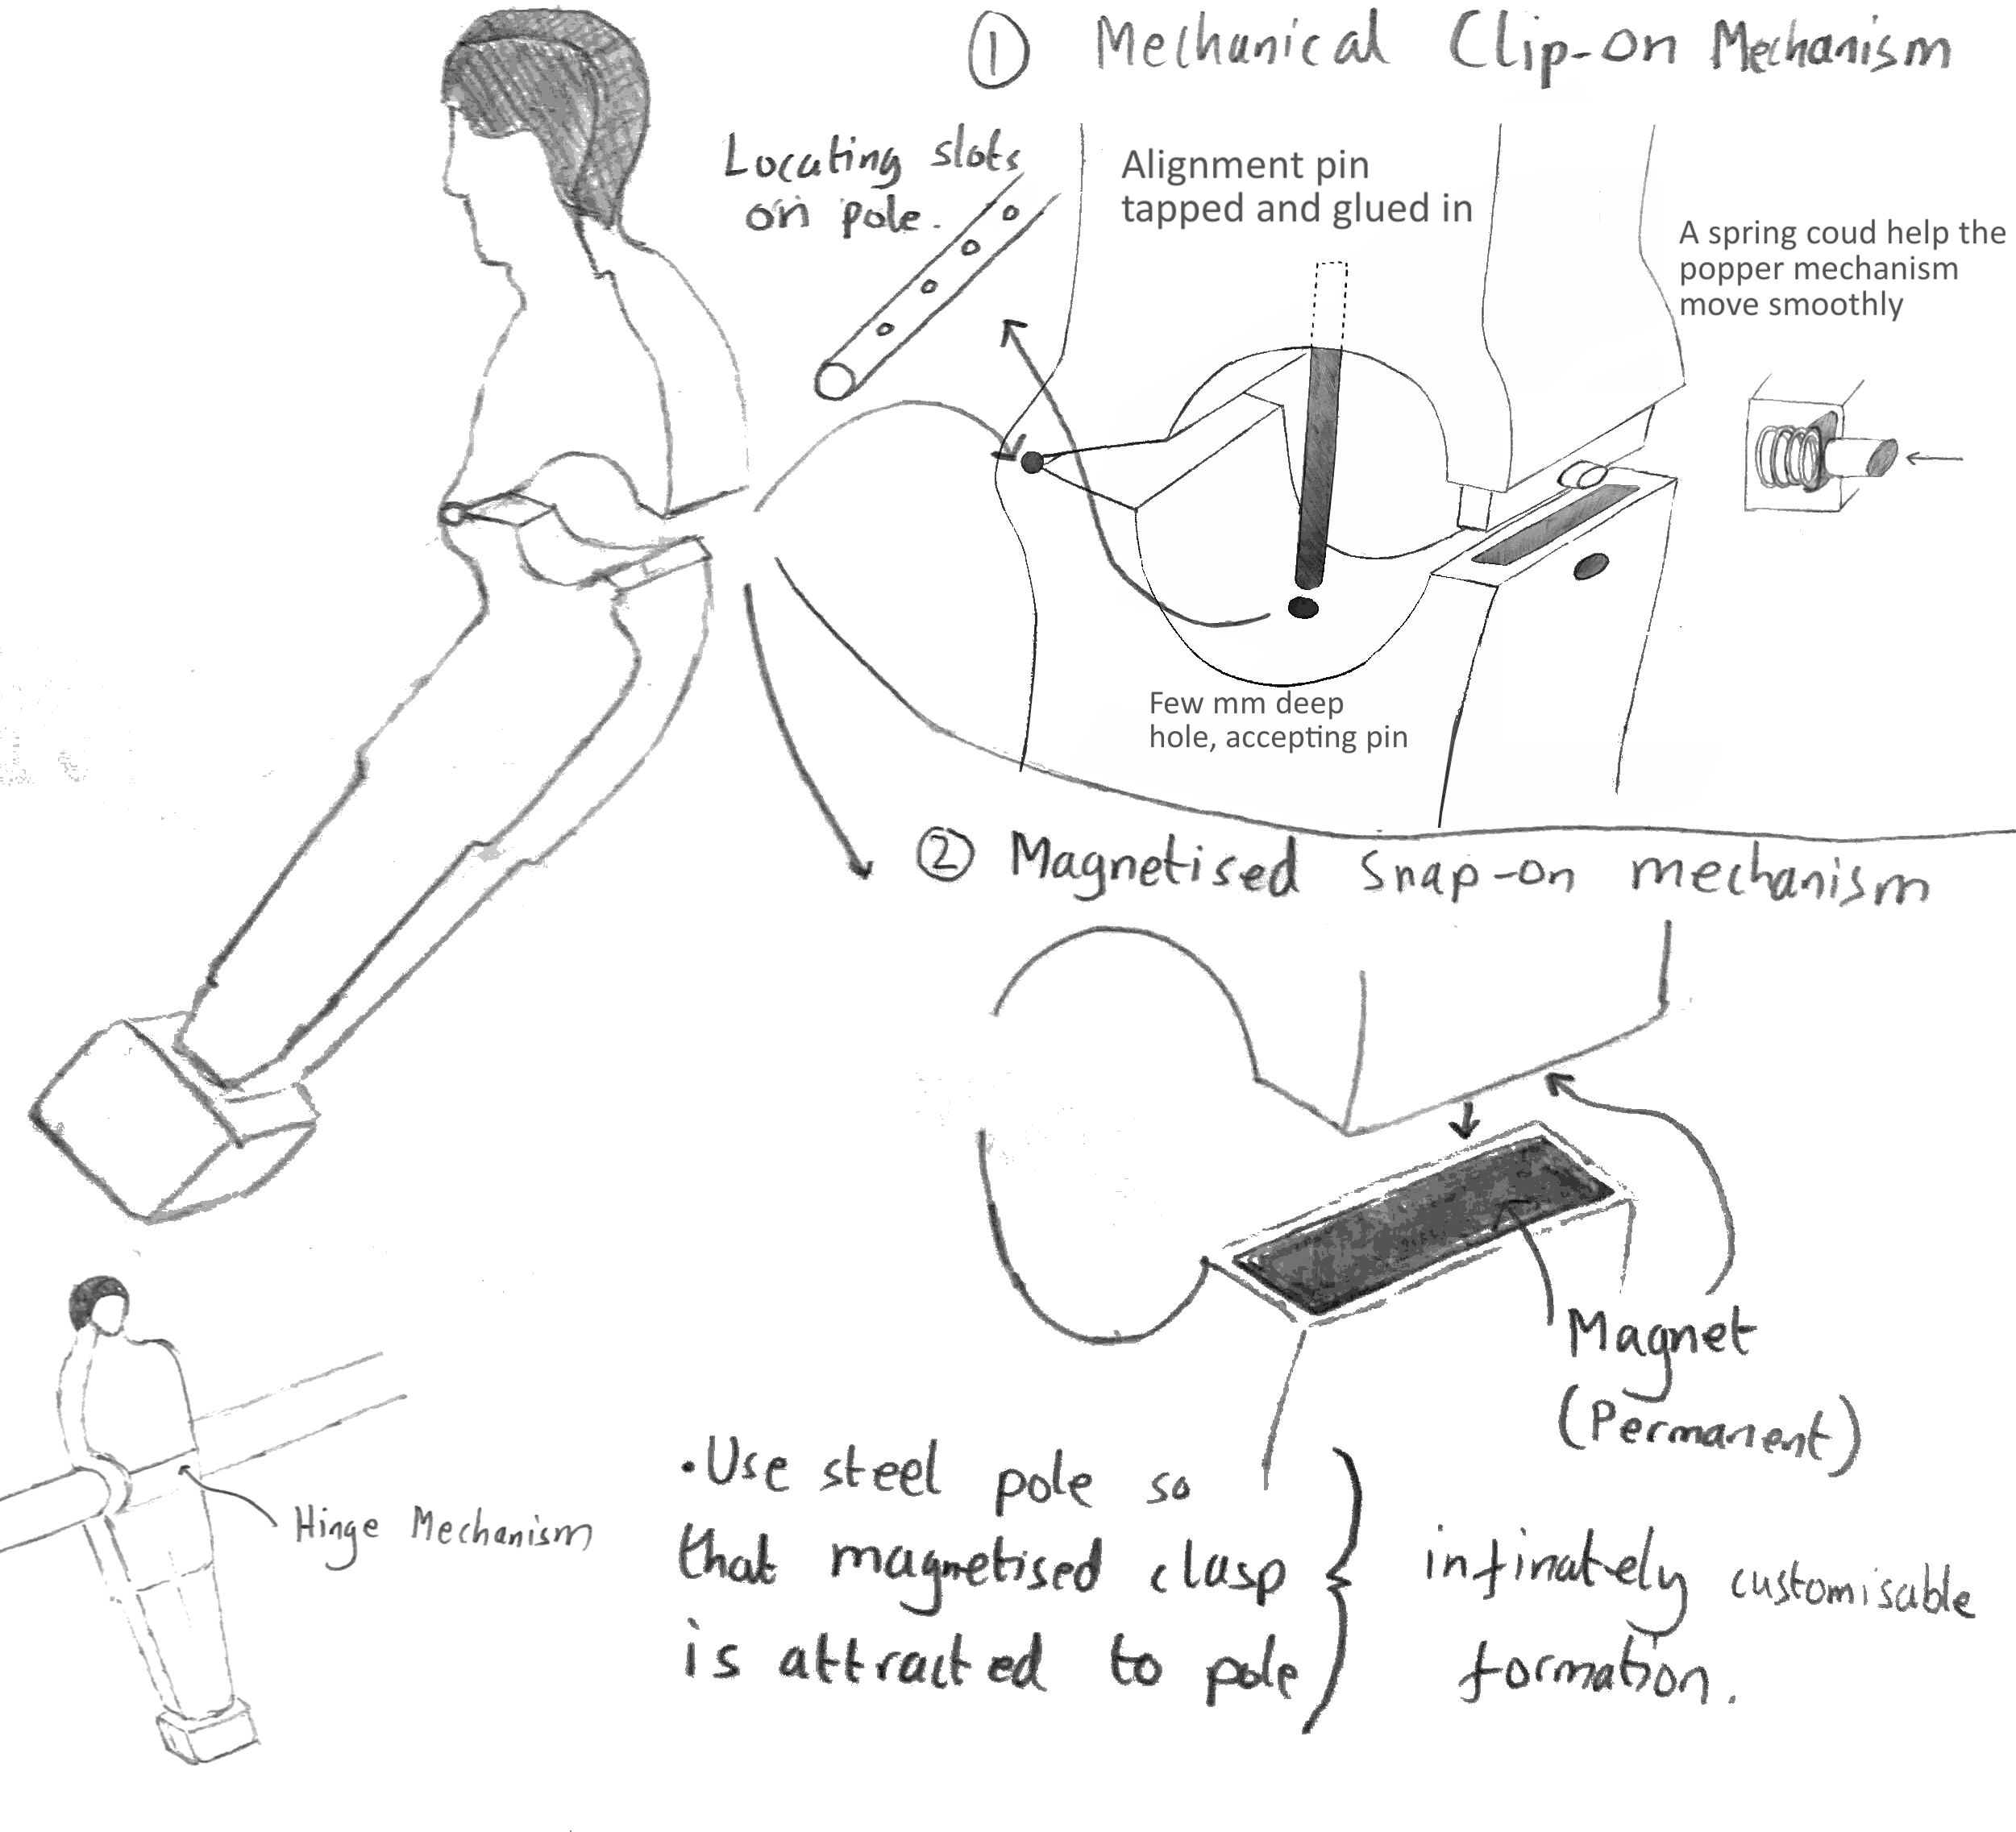 ① Mechanical Clip-on Mechanism
Locating slots
on pole.
Alignment pin
tapped and glued in
A spring coud help the
popper mechanism
move smoothly
Few mm deep
hole, accepting pin
② Magnetised snap-on mechanism
Magnet
(Permanent)
Hinge Mechanism
•Use steel pole so
that magnetised clasp
is attracted to pole
infinately customisable
formation.